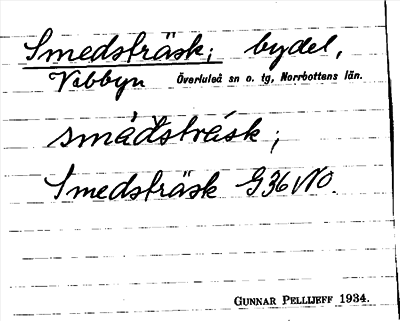 Smedsträsk; bydel,
Vebbyn Överluleå sn o. tg, Norrbottens län.
småd̆strásk;
Smedsträsk G36NO.
GUNNAR PELLIJEFF 1934.